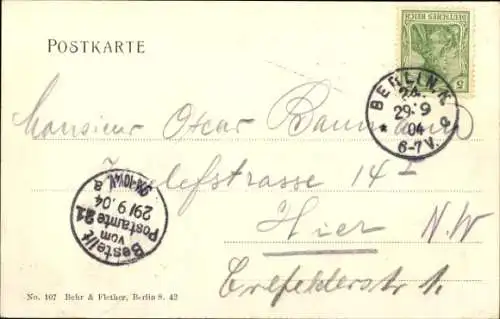 POSTKARTE
DEUTSCHES REICH
5
BERLIN.N.
24.
29.9
04
6-7V.
* a
Monsieur Oscar Baumann
14
Hier N.W
Crefelderstr 1.
Bestellt
vom
Postamte 21
29/9.04
No. 107 Behr & Flether, Berlin S. 42